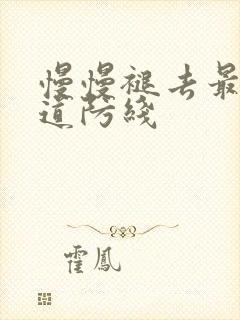 慢慢褪去最
道防綫
霍鳳